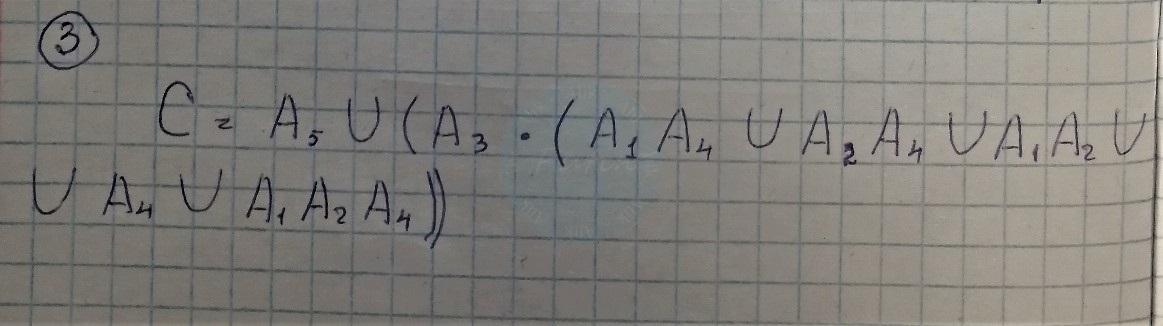 3
C = A₅ ∪ (A₃ · (A₁ A₄ ∪ A₂ A₄ ∪ A₁ A₂ ∪
∪ A₄ ∪ A₁ A₂ A₄))